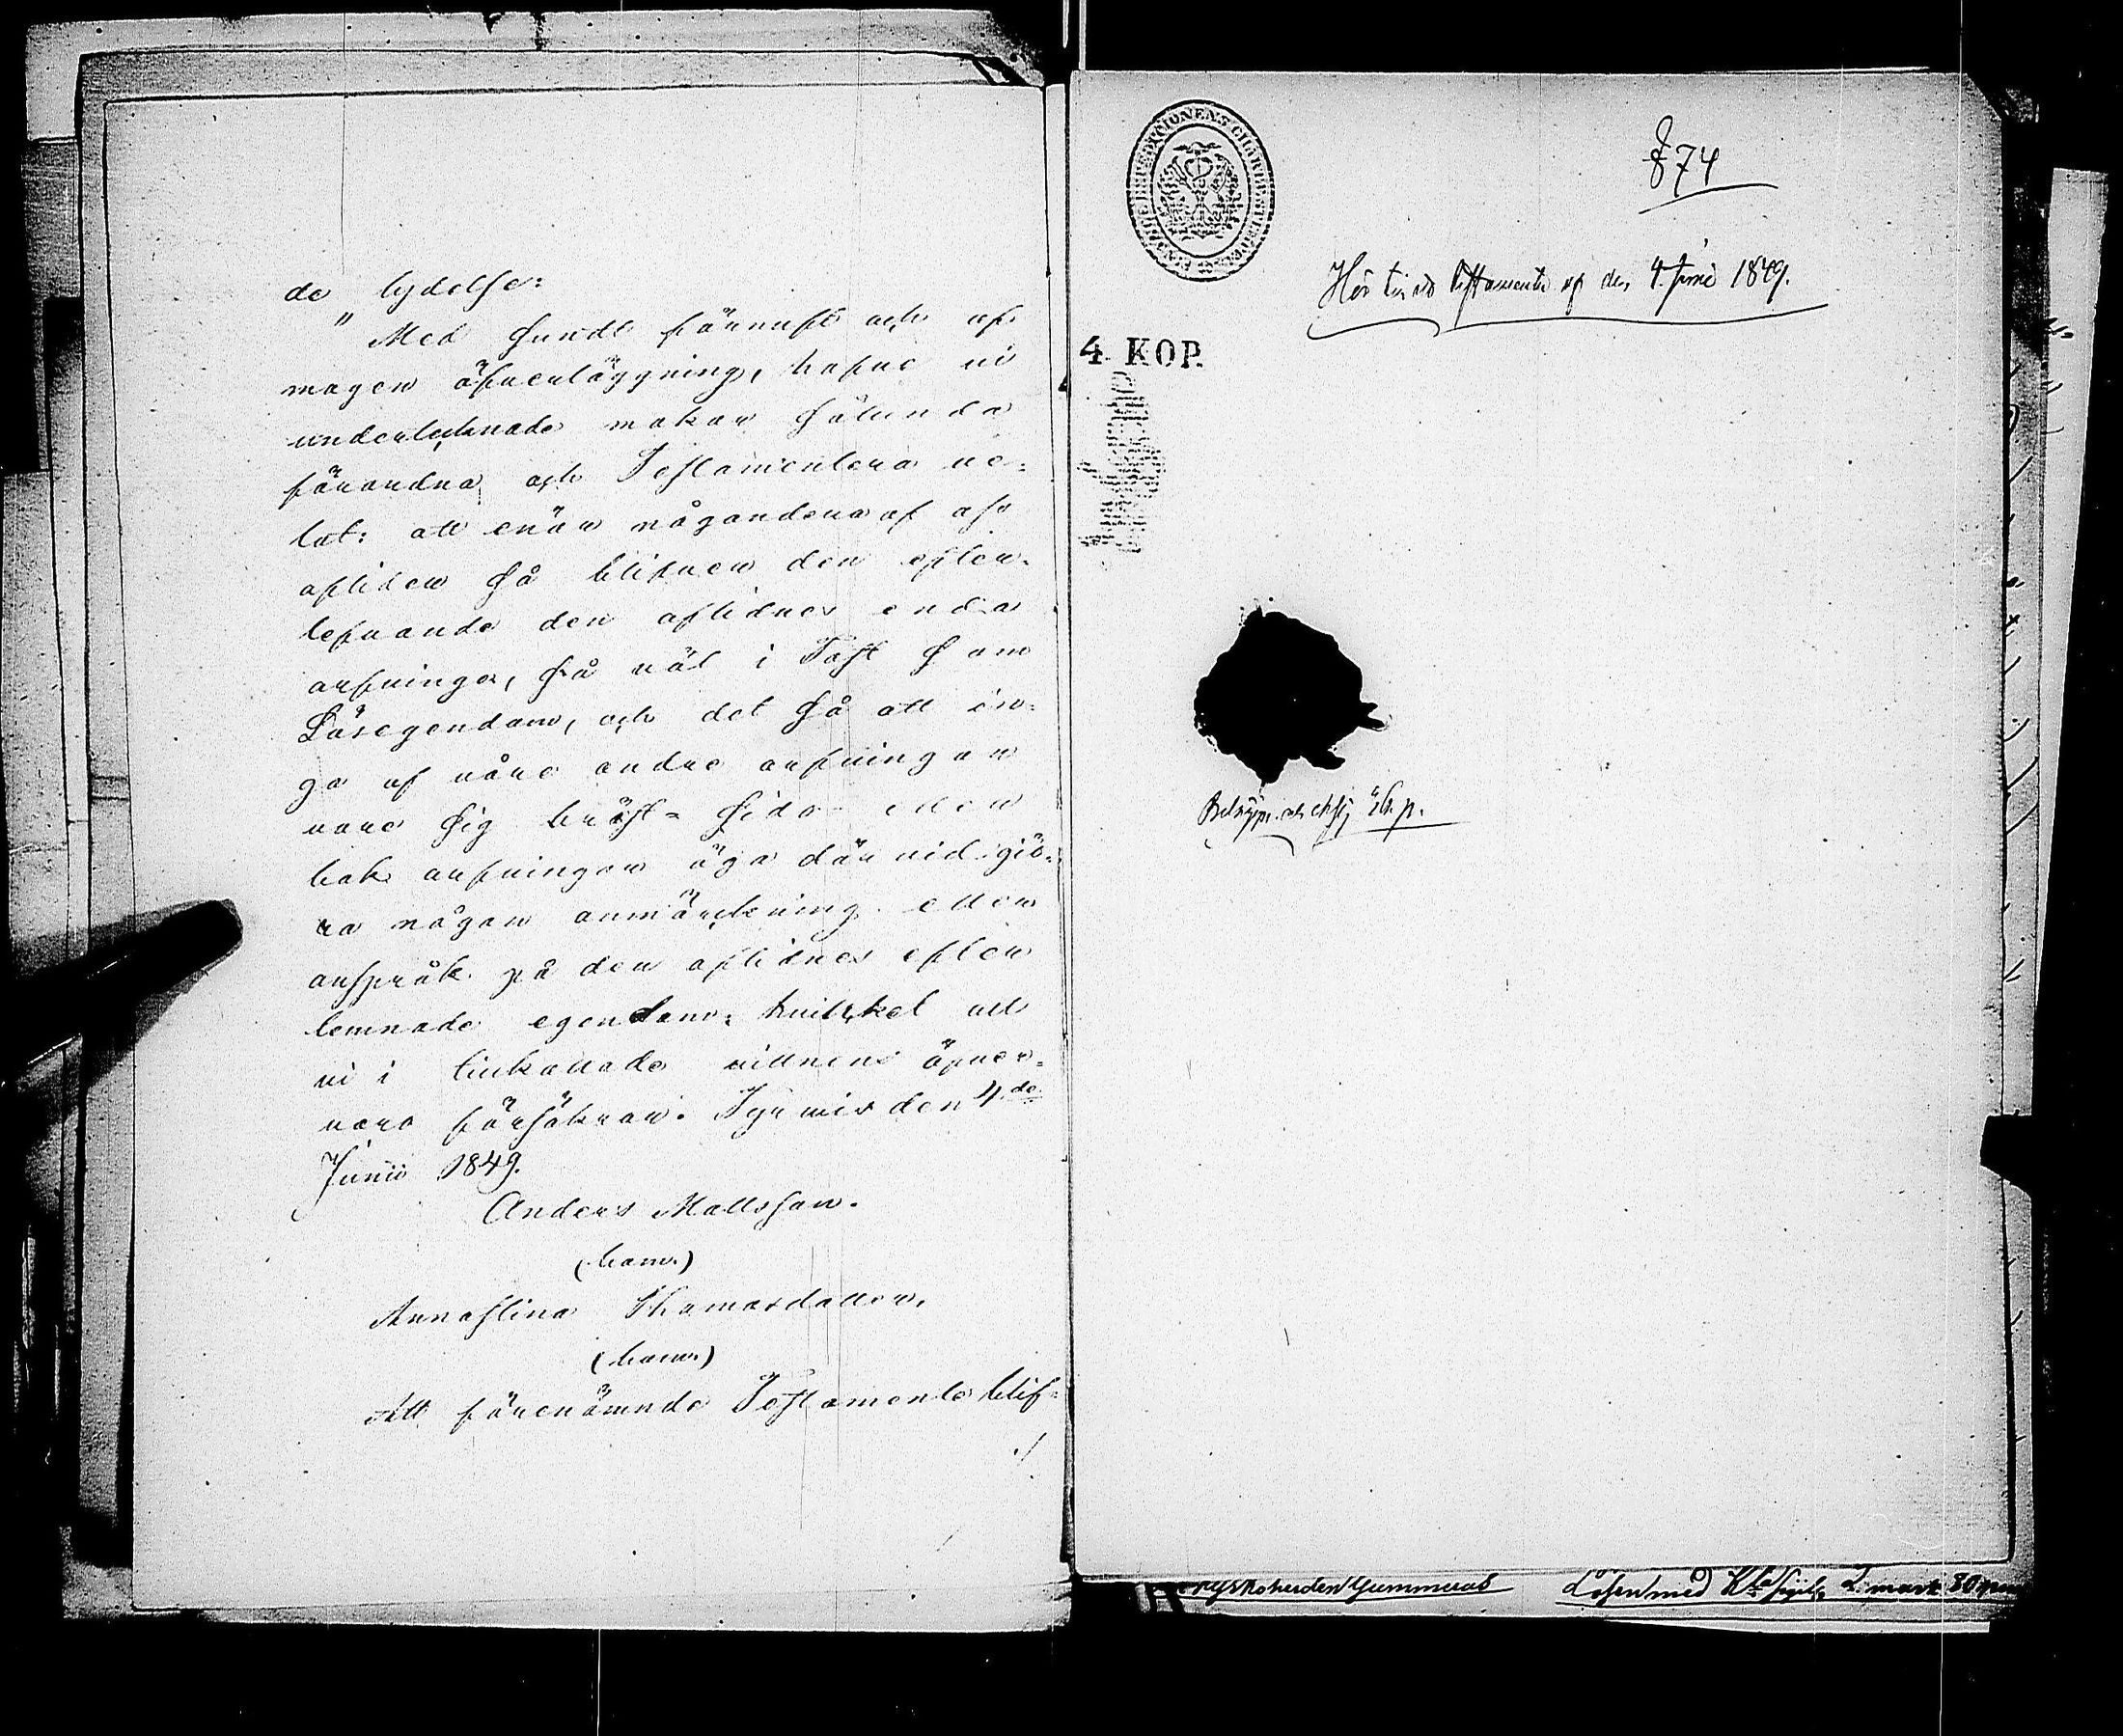 de lydelse:
"Med sundt förnuft och af
mogen öfverläggning, hafve vi
undertecknade makar sålunda
förordna och Testamentera ve-
lat: att enär någondera af oss
afliden så blifver den efter-
lefvande den aflidnes enda
arfvinge, så väl i Fast som
Lösegendom, och det så att in-
ga af våre andre arfvingar
vare sig bröst- sido- eller
bak arfvingar äga där vid giö-
ra någon anmärckning eller
anspråk på den aflidnes efter
lemnade egendom; hvilcket allt
vi i tilkallade vittnens öfver-
varo försäkrar. Tyrvis den 4de
Junii 1849.
Anders Mattsson.
(bom.)
Annastina Thomasdotter.
(bom.)
Att förenämnde Testamente blif-
./.
§ 74
Hör till ett testamente af den 4. Junii 1849.
4 KOP.